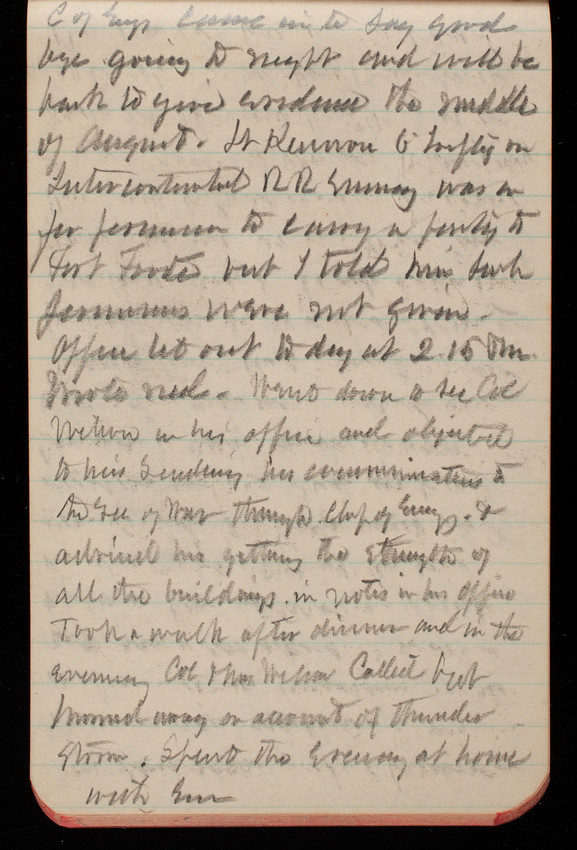 C of Engs came in to say good
bye going to night and will be
back to give evidence the middle
of August. Lt Kennon 6 Infty on
Intercontinental RR Survey was in
for permission to carry a party to
Fort Foote but I told him such
permissions were not given.
Office let out to day at 2.15 Pm.
Wrote Ned. Went down to see Col
Wilson in his office and objected
to his sending his communications to
the Sec of War through Ch of Engs. &
advised his getting the strength of
all the buildings in notes in his office
Took a walk after dinner and in the
evening Col & Mrs Wilson Called but
hurried away on account of thunder
storm. Spent the evening at home
with Em